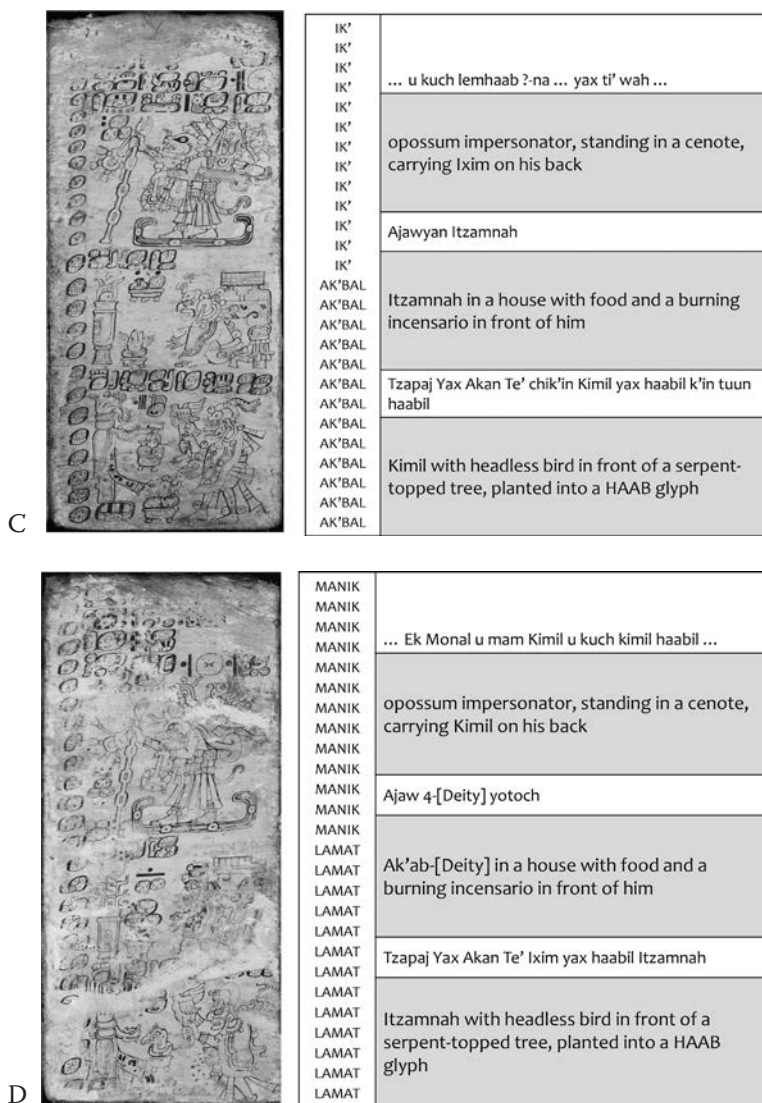 C
IK'
IK'
IK'
IK'
IK'
IK'
IK'
IK'
IK'
IK'
IK'
IK'
IK'
AK'BAL
AK'BAL
AK'BAL
AK'BAL
AK'BAL
AK'BAL
AK'BAL
AK'BAL
AK'BAL
AK'BAL
AK'BAL
AK'BAL
AK'BAL
... u kuch lemhaab ?-na ... yax ti' wah ...
opossum impersonator, standing in a cenote,
carrying Ixim on his back
Ajawyan Itzamnah
Itzamnah in a house with food and a burning
incensario in front of him
Tzapaj Yax Akan Te' chik'in Kimil yax haabil k'in tuun
haabil
Kimil with headless bird in front of a serpent-
topped tree, planted into a HAAB glyph
D
MANIK
MANIK
MANIK
MANIK
MANIK
MANIK
MANIK
MANIK
MANIK
MANIK
MANIK
MANIK
MANIK
LAMAT
LAMAT
LAMAT
LAMAT
LAMAT
LAMAT
LAMAT
LAMAT
LAMAT
LAMAT
LAMAT
LAMAT
LAMAT
... Ek Monal u mam Kimil u kuch kimil haabil ...
opossum impersonator, standing in a cenote,
carrying Kimil on his back
Ajaw 4-[Deity] yotoch
Ak'ab-[Deity] in a house with food and a
burning incensario in front of him
Tzapaj Yax Akan Te' Ixim yax haabil Itzamnah
Itzamnah with headless bird in front of a
serpent-topped tree, planted into a HAAB
glyph